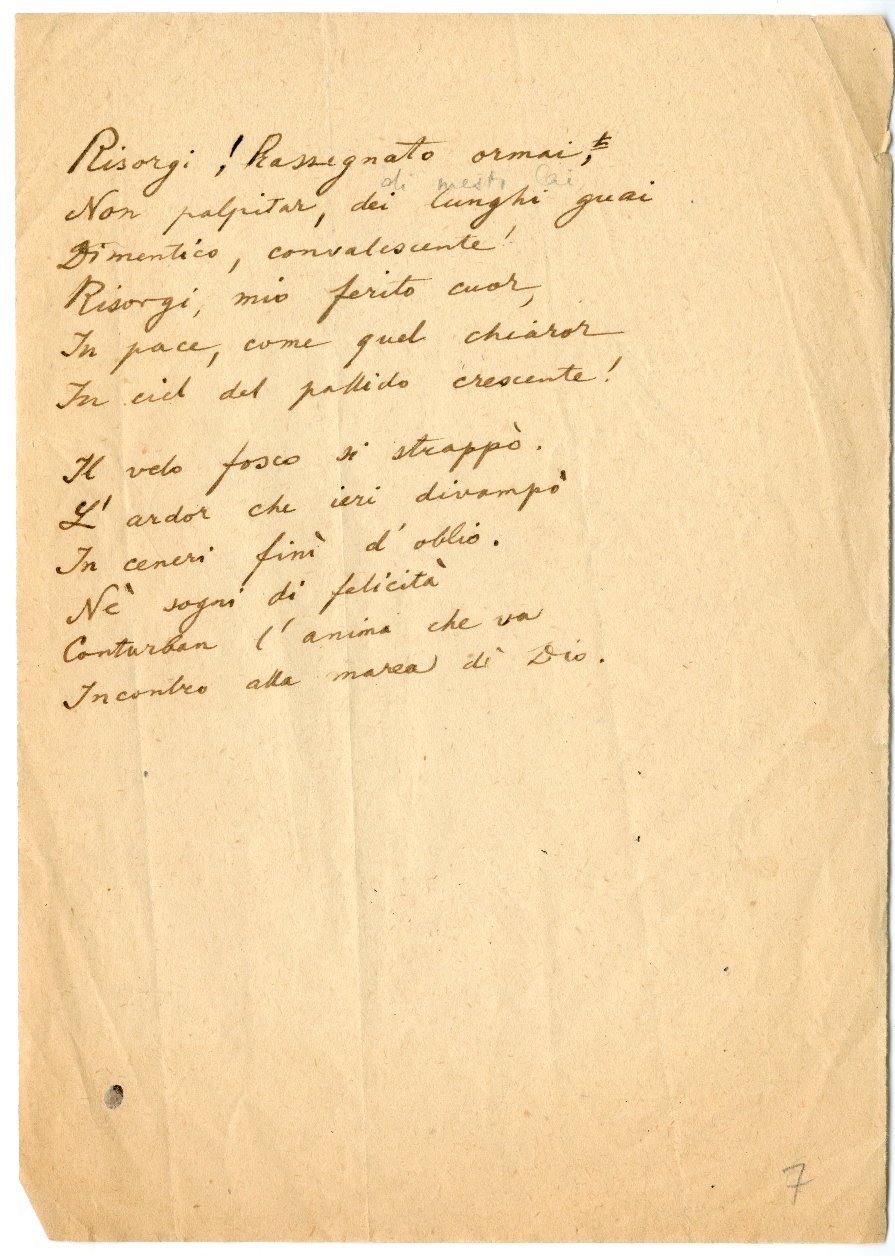 Risorgi! Rassegnato ormai,
di mesti lai,
Non palpitar, dei lunghi guai
Dimentico, convalescente!
Risorgi, mio ferito cuor,
In pace, come quel chiaror
In ciel del pallido crescente!
Il velo fosco si strappò.
L'ardor che ieri divampò
In ceneri finì d'oblio.
Nè sogni di felicità
Conturban l'anima che va
Incontro alla marea di Dio.
7